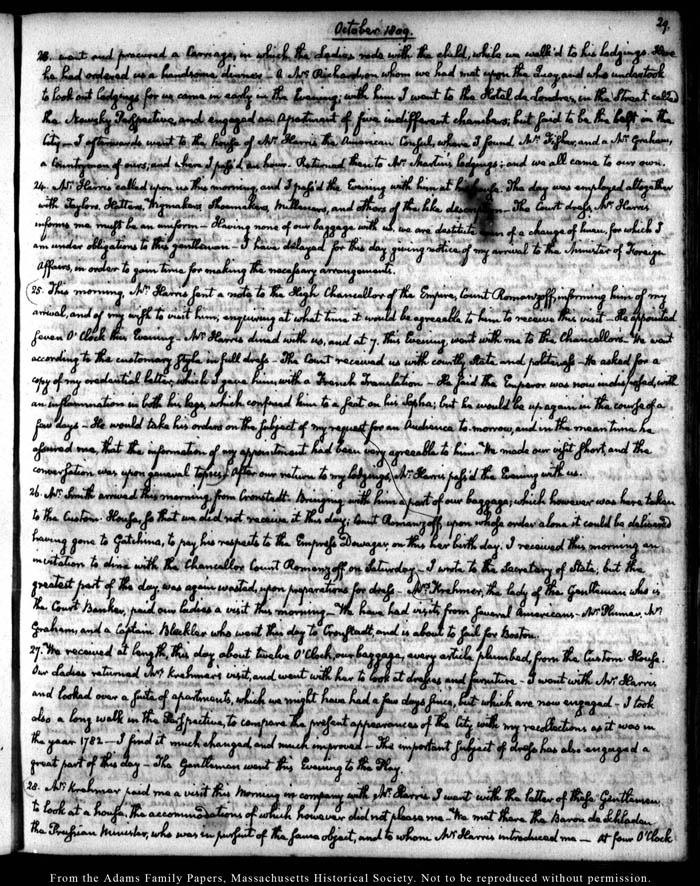 October 1809.
29.
23. went and procured a Carriage, in which the Ladies rode with the child, while we walk'd to his lodgings. Here
he had ordered us a handsome dinner — A Mr Richardson whom we had met upon the Quay, and who undertook
to look out lodgings for us came in early in the Evening; with him I went to the Hotel de Londres, in the Street called
the Newsky Perspective, and engaged an Apartment of five indifferent chambers; but said to be the best in the
City — I afterwards went to the house of Mr Harris the American Consul, where I found Mr Fisher, and a Mr Graham,
a Countryman of ours; and where I pass'd an hour. Returned then to Mr Martin's lodgings; and we all came to our own.
24. Mr Harris called upon us this morning, and I pass'd the Evening with him at his house. The day was employed altogether
with Taylors, Hatters, Wigmakers, Shoemakers, Milliners, and others of the like description — The Court dress, Mr Harris
informs me must be an uniform — Having none of our baggage with us, we are destitute even of a change of linen, for which I
am under obligations to this gentleman — I have delayed for this day giving notice of my arrival to the Minister of Foreign
Affairs, in order to gain time for making the necessary arrangements.
25. This morning Mr Harris sent a note to the High Chancellor of the Empire, Count Romanzoff, informing him of my
arrival, and of my wish to visit him, enquiring at what time it would be agreeable to him to receive this visit — He appointed
seven O'Clock this Evening — Mr Harris dined with us, and at 7. this Evening, went with me to the Chancellors — We went
according to the customary style in full dress — The Count received us with courtly State and politeness — He asked for a
copy of my credential letter, which I gave him, with a French Translation — He said the Emperor was now indisposed, with
an inflammation in both his legs, which confined him to a seat on his Sopha; but he would be up again in the course of a
few days — He would take his orders on the subject of my request for an Audience to-morrow, and in the mean time he
assured me, that the information of my appointment had been very agreeable to him. We made our visit short, and the
conversation was upon general topics. After our return to my lodgings, Mr Harris pass'd the Evening with us.
26. Mr Smith arrived this morning, from Cronstadt. Bringing with him a part of our baggage; which however was here taken
to the Custom-House, so that we did not receive it this day; Count Romanzoff, upon whose order alone it could be delivered
having gone to Gatchina, to pay his respects to the Empress Dowager, on this her birth day. I received this morning an
invitation to dine with the Chancellor Count Romanzoff, on Saturday — I wrote to the Secretary of State, but the
greatest part of the day, was again wasted, upon preparations for dress — Mrs Krehmer, the lady of the Gentleman who is
the Court Banker, paid our ladies a visit this morning — We have had visits from several Americans — Mr Plumer, Mr
Graham, and a Captain Bleckler who went this day to Cronstadt, and is about to sail for Boston.
27. We received at length, this day about twelve O'Clock, our baggage, every article plumbed, from the Custom House.
Our ladies returned Mrs Krehmers visit, and went with her to look at dresses and furniture — I went with Mr Harris
and looked over a suite of apartments, which we might have had a few days since, but which are now engaged — I took
also a long walk in the Perspective, to compare the present appearances of the City, with my recollections as it was in
the year 1782 — I find it much changed, and much improved — The important subject of dress has also engaged a
great part of this day — The Gentlemen went this Evening to the Play.
28. Mr Krehmer paid me a visit this Morning in company with Mr Harris. I went with the latter of these Gentlemen
to look at a house, the accommodations of which however did not please me — We met there the Baron de Schladen
the Prussian Minister, who was in pursuit of the same object, and to whom Mr Harris introduced me — At four O'Clock
From the Adams Family Papers, Massachusetts Historical Society. Not to be reproduced without permission.